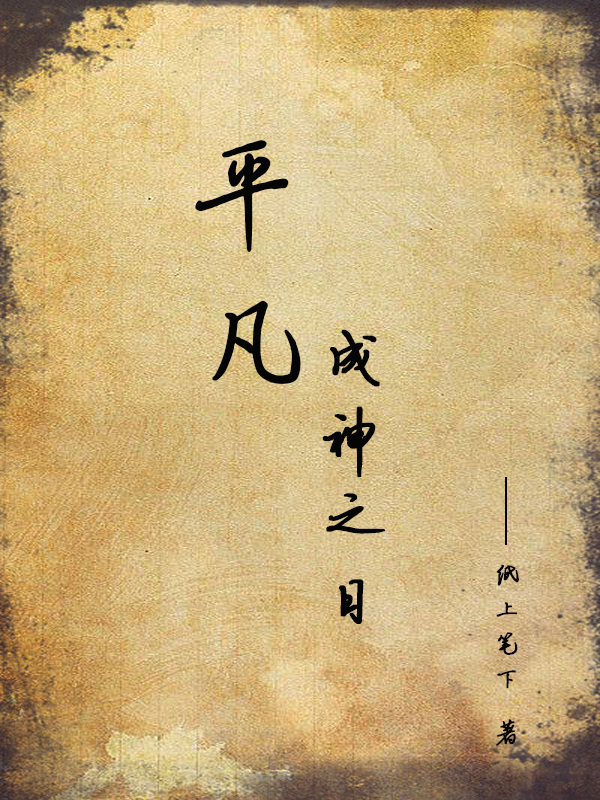 平凡
成神之日
——纸上笔下 著